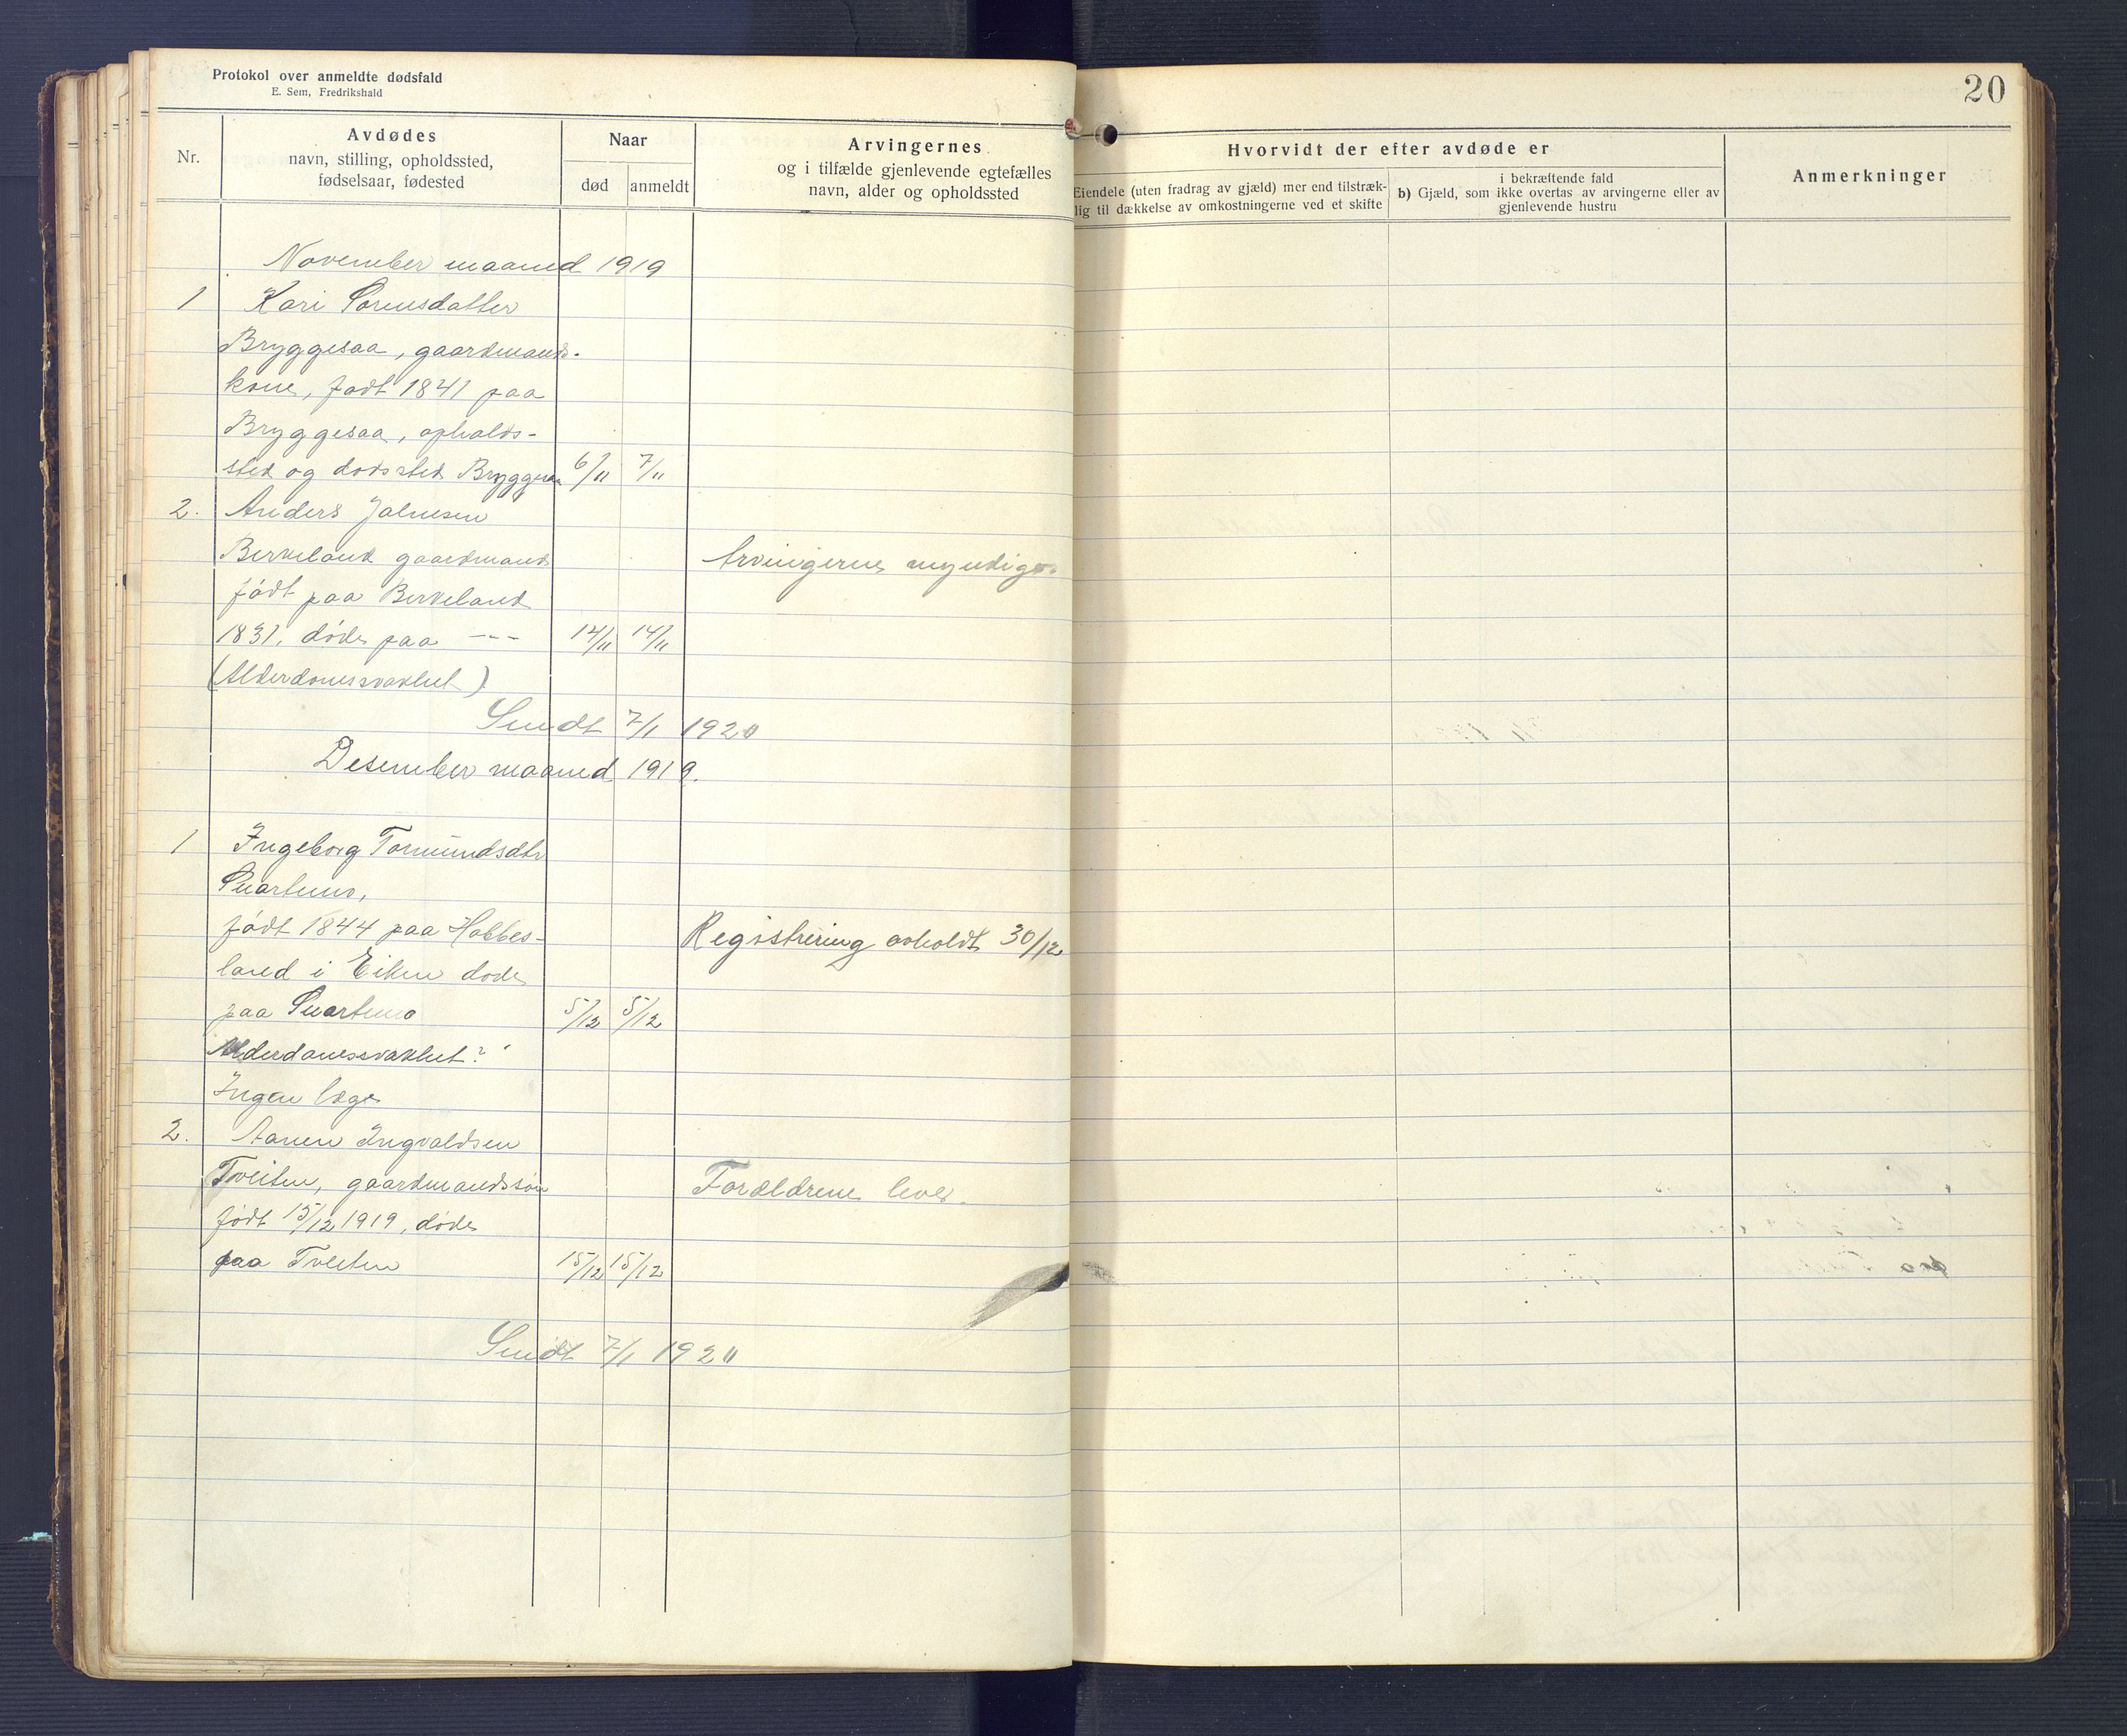 Protokol over anmeldte dødsfald
E. Sem, Fredrikshald
20
Nr.
Avdødes
navn, stilling, opholdssted,
fødselsaar, fødested
Naar
død
anmeldt
Arvingernes
og i tilfælde gjenlevende egtefælles
navn, alder og opholdssted
Hvorvidt der efter avdøde er
Eiendele (uten fradrag av gjæld) mer end tilstræk-
lig til dækkelse av omkostningerne ved et skifte
i bekræftende fald
b) Gjæld, som ikke overtas av arvingerne eller av
gjenlevende hustru
Anmerkninger
November maaned 1919
1 Kari Sørensdatter
Bryggesaa, gaardmands-
kone, født 1841 paa
Bryggesaa, opholds-
sted og dødssted Bryggesaa 6/11 7/11
2. Anders
Birkeland gaardmand Arvingerne myndige.
født paa Birkeland
1831. døde paa --- 14/11 14/11
(Alderdomssvakhet)
Sendt 7/1 1920
Desember maaned 1919.
1 Ingeborg Tormundsdtr
Snartemo,
født 1844 paa Hobbes-
land i Eiken døde Registrering avholdt 30/12
paa Snartemo 5/12 5/12
Alderdomssvakhet?
Ingen læge
2. Aanen Ingvaldsen
Tveiten, gaardmandssøn Forældrene lever.
født 15/12 1919, døde
paa Tveiten 15/12 15/12
Sendt 7/1 1920